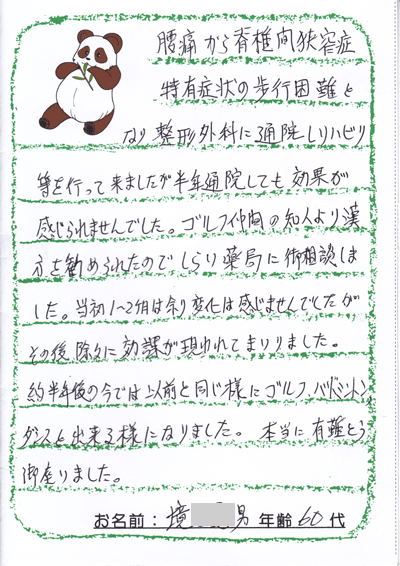 腰痛から脊椎間狭窄症
特有症状の歩行困難と
なり整形外科に通院しリハビリ
等を行って来ましたが半年通院しても効果が
感じられませんでした。ゴルフ仲間の知人より漢
方を勧められたのでしらり薬局に御相談しま
した。当初1~2ヶ月は余り変化は感じませんでしたが
その後除々に効果が現われてまいりました。
約半年後の今では以前と同じ様にゴルフ、バドミントン、
ダンスと出来る様になりました。本当に有難とう
御座りました。
お名前:境 男 年齢60代